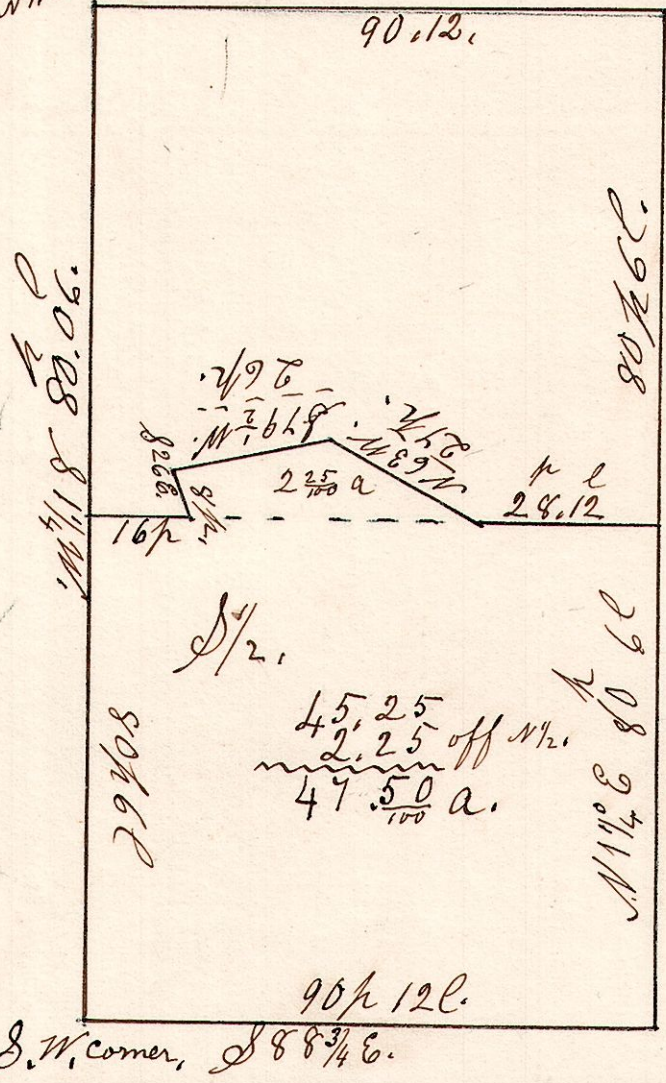 90.12.
80p 6l.
S 1¼ W. 80.06.
p l
S 79½ W.
26p.
N 63 W.
27p.
S 26 E.
8p.
2 25/100 a
p l
28.12
16p
S ½.
45.25
2.25 off N ½.
47.50/100 a.
80p 6l
N 1¼° E 80 6l
p
90p 12l.
S. W. corner, S 88¾ E.